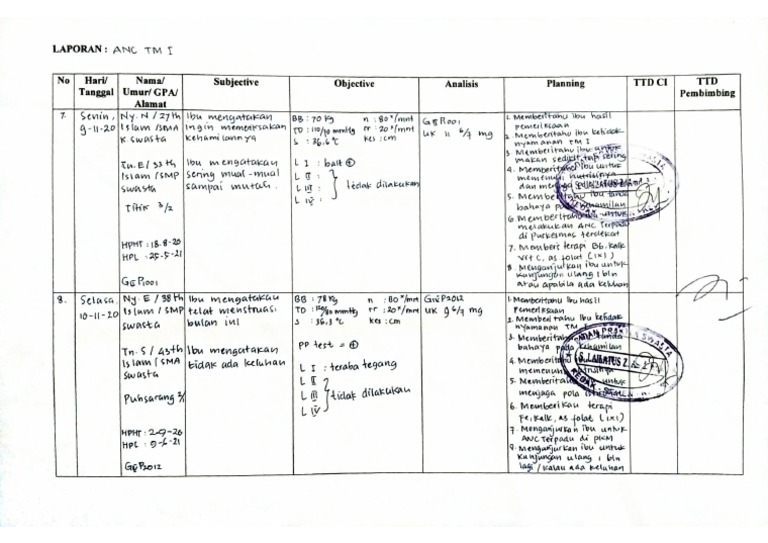 LAPORAN : ANC TM I
No
Hari/
Tanggal
Nama/
Umur/ GPA/
Alamat
Subjective
Objective
Analisis
Planning
TTD CI
TTD
Pembimbing
7.
Senin,
9-11-20
Ny. N / 27th
Islam /SMA
swasta
Tn. E / 33th
Islam / SMP
swasta
Titik 3/2
HPHT : 18-8-20
HPL : 25-5-21
Ibu mengatakan
ingin memeriksakan
kehamilannya
Ibu mengatakan
sering mual-mual
sampai muntah.
BB : 70 kg n : 80 x/mnt
TD : 110/80 mmHg rr : 20 x/mnt
S : 36.6 °C kes : cm
L I : ball ⊕
L II :
L III : tidak dilakukan
L IV :
UK 11 6/7 mg
1. Memberitahu ibu hasil
pemeriksaan
2. Memberitahu ibu ketidak
nyamanan TM I
3. Memberitahu ibu untuk
makan sedikit tapi sering
4. Memberitahu ibu untuk
memenuhi nutrisinya
dan menjaga pola
5. Memberitahu ibu tanda
bahaya pada kehamilan
6. Memberitahu ibu untuk
melakukan ANC Terpadu
di Puskesmas terdekat
7. Memberi terapi B6, kalk
vit C, as folat (1x1)
8. Menganjurkan ibu untuk
kunjungan ulang 1 bln
atau apabila ada keluhan
8.
Selasa,
10-11-20
Ny. E / 38th
Islam / SMP
swasta
Tn. S / 43th
Islam / SMA
swasta
Puhsarang
HPHT : 2-9-20
HPL : 9-6-21
Ibu mengatakan
telat menstruasi
bulan ini
Ibu mengatakan
tidak ada keluhan
BB : 78 kg n : 80 x/mnt
TD : rr : 20 x/mnt
S : 36.3 °C kes : cm
PP test = ⊕
L I : teraba tegang
L II
L III tidak dilakukan
L IV
UK 9 6/7 mg
1. Memberitahu ibu hasil
pemeriksaan
2. Memberi tahu ibu ketidak
nyamanan TM I
3. Memberitahu ibu tanda
bahaya pada kehamilan
4. Memberitahu ibu
memenuhi nutrisinya
5. Memberitahu ibu untuk
menjaga pola istirahat
6. Memberikan terapi
Fe, kalk, as folat (1x1)
7. Menganjurkan ibu untuk
ANC Terpadu di PKM
9. Menganjurkan ibu untuk
kunjungan ulang 1 bln
lagi / kalau ada keluhan